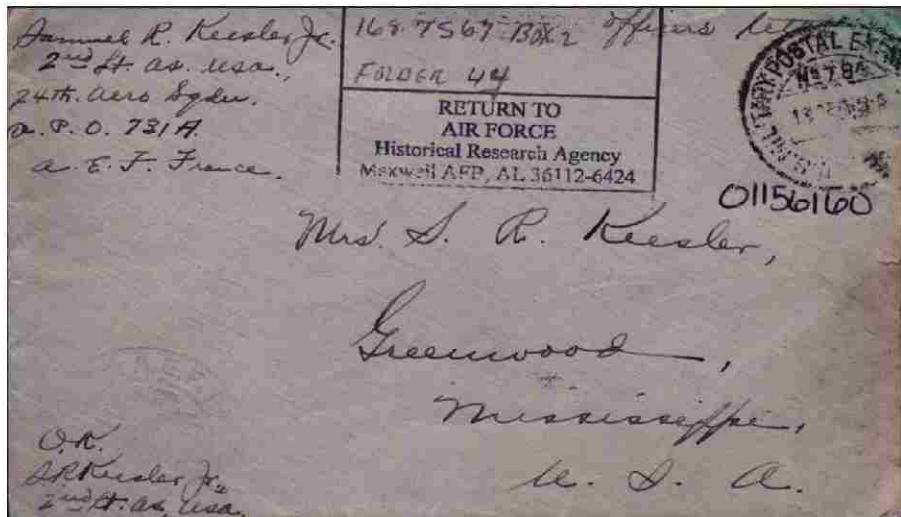 Samuel R. Keesler Jr.
2nd Lt. as. usa.,
24th. Aero Sqdn.
a. P. O. 731A.
a. E. F. France.
168.7567 Box 2 officers
FOLDER 44
RETURN TO
AIR FORCE
Historical Research Agency
Maxwell AFB, AL 36112-6424
POSTAL EX
01156160
Mrs. S. R. Keesler,
Greenwood,
Mississippi,
U. S. A.
O.K.
S.R. Keesler Jr.,
2nd Lt. as, usa.